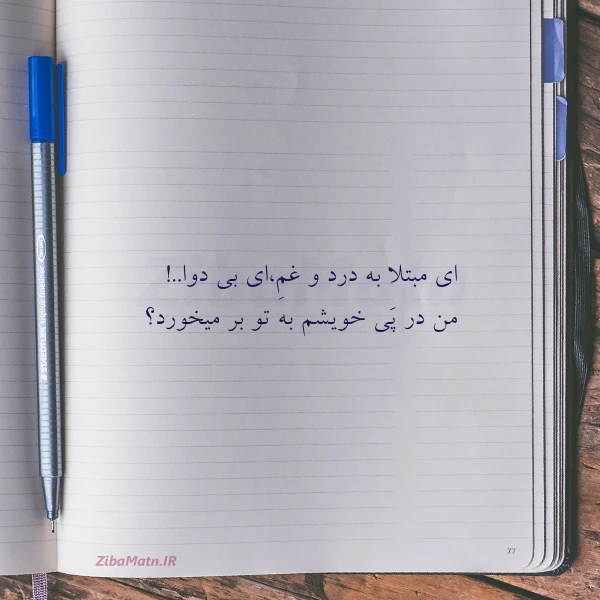 ای مبتلا به درد و غمِ،ای بی دوا..!
من در پَی خویشم به تو بر میخورد؟
ZibaMatn.IR
77
STAEDTLER triplus fineliner